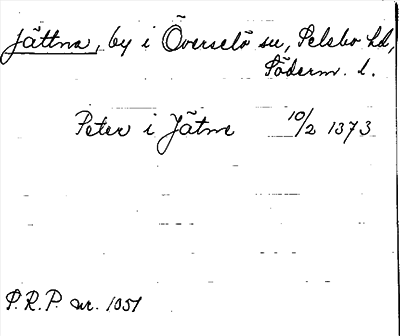 Jättna, by i Överselö sn, Selebo hd,
Söderm. l.
Peter i Jätne 10/2 1373
P.R.P. nr. 1051